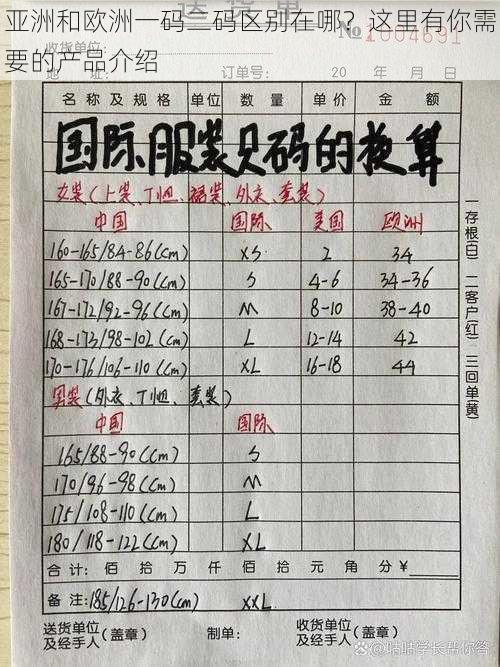 亚洲和欧洲一码二码区别在哪？这里有你需
要的产品介绍
送货单
收货单位：
No 1004691
订单号：
20 年 月 日
名称及规格 单位 数量 单价 金额
国际服装尺码的换算
女装(上装、T恤、裙装、外衣、套装)
中国 国际 美国 欧洲
160-165/84-86(cm) XS 2 34
165-170/88-90(cm) S 4-6 34-36
167-172/92-96(cm) M 8-10 38-40
168-173/98-102(cm) L 12-14 42
170-176/106-110(cm) XL 16-18 44
男装(外衣、T恤、套装)
中国 国际
165/88-90(cm) S
170/96-98(cm) M
175/108-110(cm) L
180/118-122(cm) XL
合计： 佰 拾 万 仟 佰 拾 元 角 分 ¥
备注：185/126-130(cm) XXL
送货单位
及经手人(盖章) 单位： 收货单位
及经手人(盖章)
一存根(白) 二客户(红) 三回单(黄)